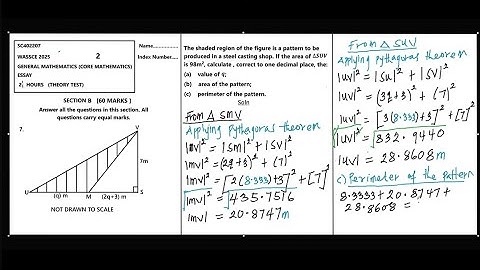 SC402207
WASSCE 2025 2
GENERAL MATHEMATICS (CORE MATHEMATICS)
ESSAY
2½ HOURS (THEORY TEST)
Name................
Index Number.....
SECTION B [60 MARKS ]
Answer all the questions in this section. All
questions carry equal marks.
7.
V
7m
U (q) m M (2q+3) m S
NOT DRAWN TO SCALE
The shaded region of the figure is a pattern to be
produced in a steel casting shop. If the area of ΔSUV
is 98m², calculate , correct to one decimal place, the:
(a) value of q;
(b) area of the pattern;
(c) perimeter of the pattern.
Soln
From △ SMV
Applying Pythagoras theorem
|mv|² = |Sm|² + |SV|²
|mv|² = (2q+3)² + (7)²
|mv|² = [2(8.333)+3]² + [7]²
√|mv|² = √435.7576
|mv| = 20.8747m
From △ SUV
Applying Pythagoras theorem
|uv|² = |Su|² + |SV|²
|uv|² = (3q+3)² + (7)²
|uv|² = [3(8.333)+3]² + [7]²
√|uv|² = √832.9440
|uv| = 28.8608m
c) Perimeter of the pattern
8.3333 + 20.8747 +
28.8608 =